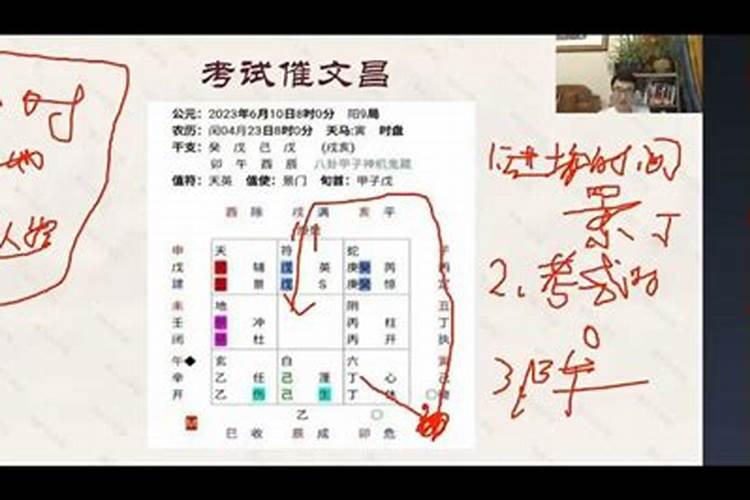 考试催文昌
公元：2023年6月10日8时0分 阳9局
农历：闰04月23日8时0分 天马:寅 时盘
干支：癸 戊 己 戊 (戌亥)
卯 午 酉 辰 八卦甲子神机鬼藏
值符：天英 值使：景门 旬首：甲子戊
酉 除 戌 满 亥 平
申 天 符 蛇 子
戊 辅 戊 英 庚癸 芮
建 景 戊 S 庚癸 惊 定
未 地 阴 丑
壬 冲 丙 柱 丁
闭 杜 丙 开 执
午 玄 白 六 寅
辛 乙 任 己 蓬 丁 心 己
开 乙 伤 己 生 丁 休
乙
巳 收 辰 成 卯 危
时
1.进场时间
景 丁
2.考试的
3